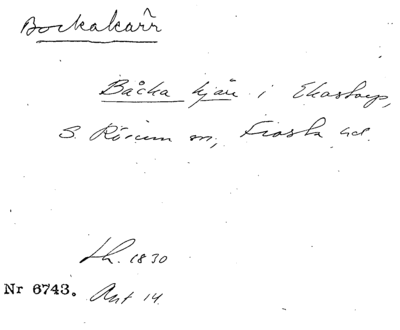 Bockakärr
Båcka kjärr i Ekastorp,
S. Rörum sn, Frosta hd.
Lh. 1830
Nr 6743. Akt 14